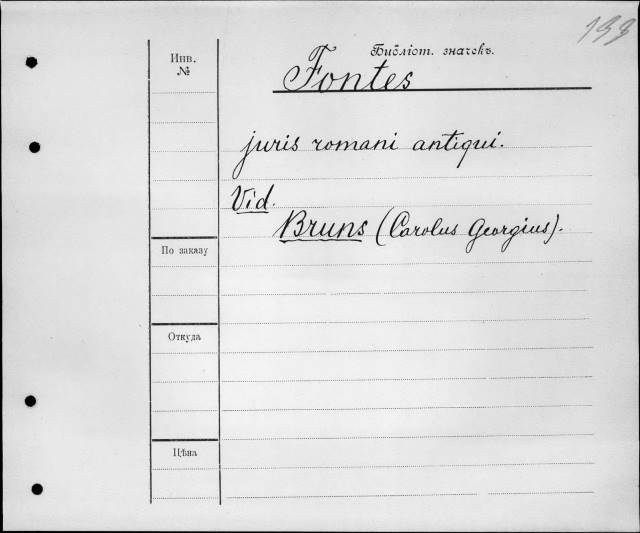 Библіот. значекъ.
Инв.
№
Fontes
juris romani antiqui.
Vid.
Bruns (Carolus Georgius).
По заказу
Откуда
Цѣна